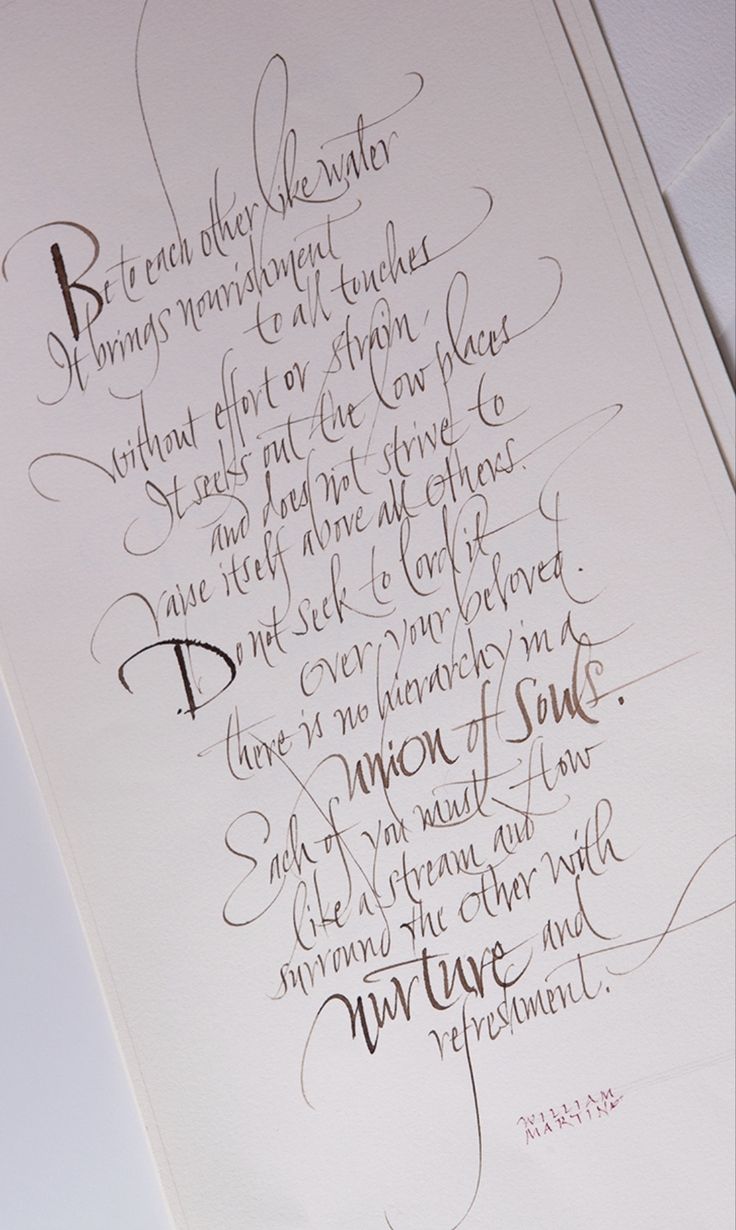 Be to each other like water
It brings nourishment
to all touches
without effort or strain.
It seeks out the low places
and does not strive to
raise itself above all others.
Do not seek to lord it
over your beloved.
there is no hierarchy in a
union of souls.
Each of you must flow
like a stream and
surround the other with
nurture and
refreshment.
WILLIAM
MARTIN